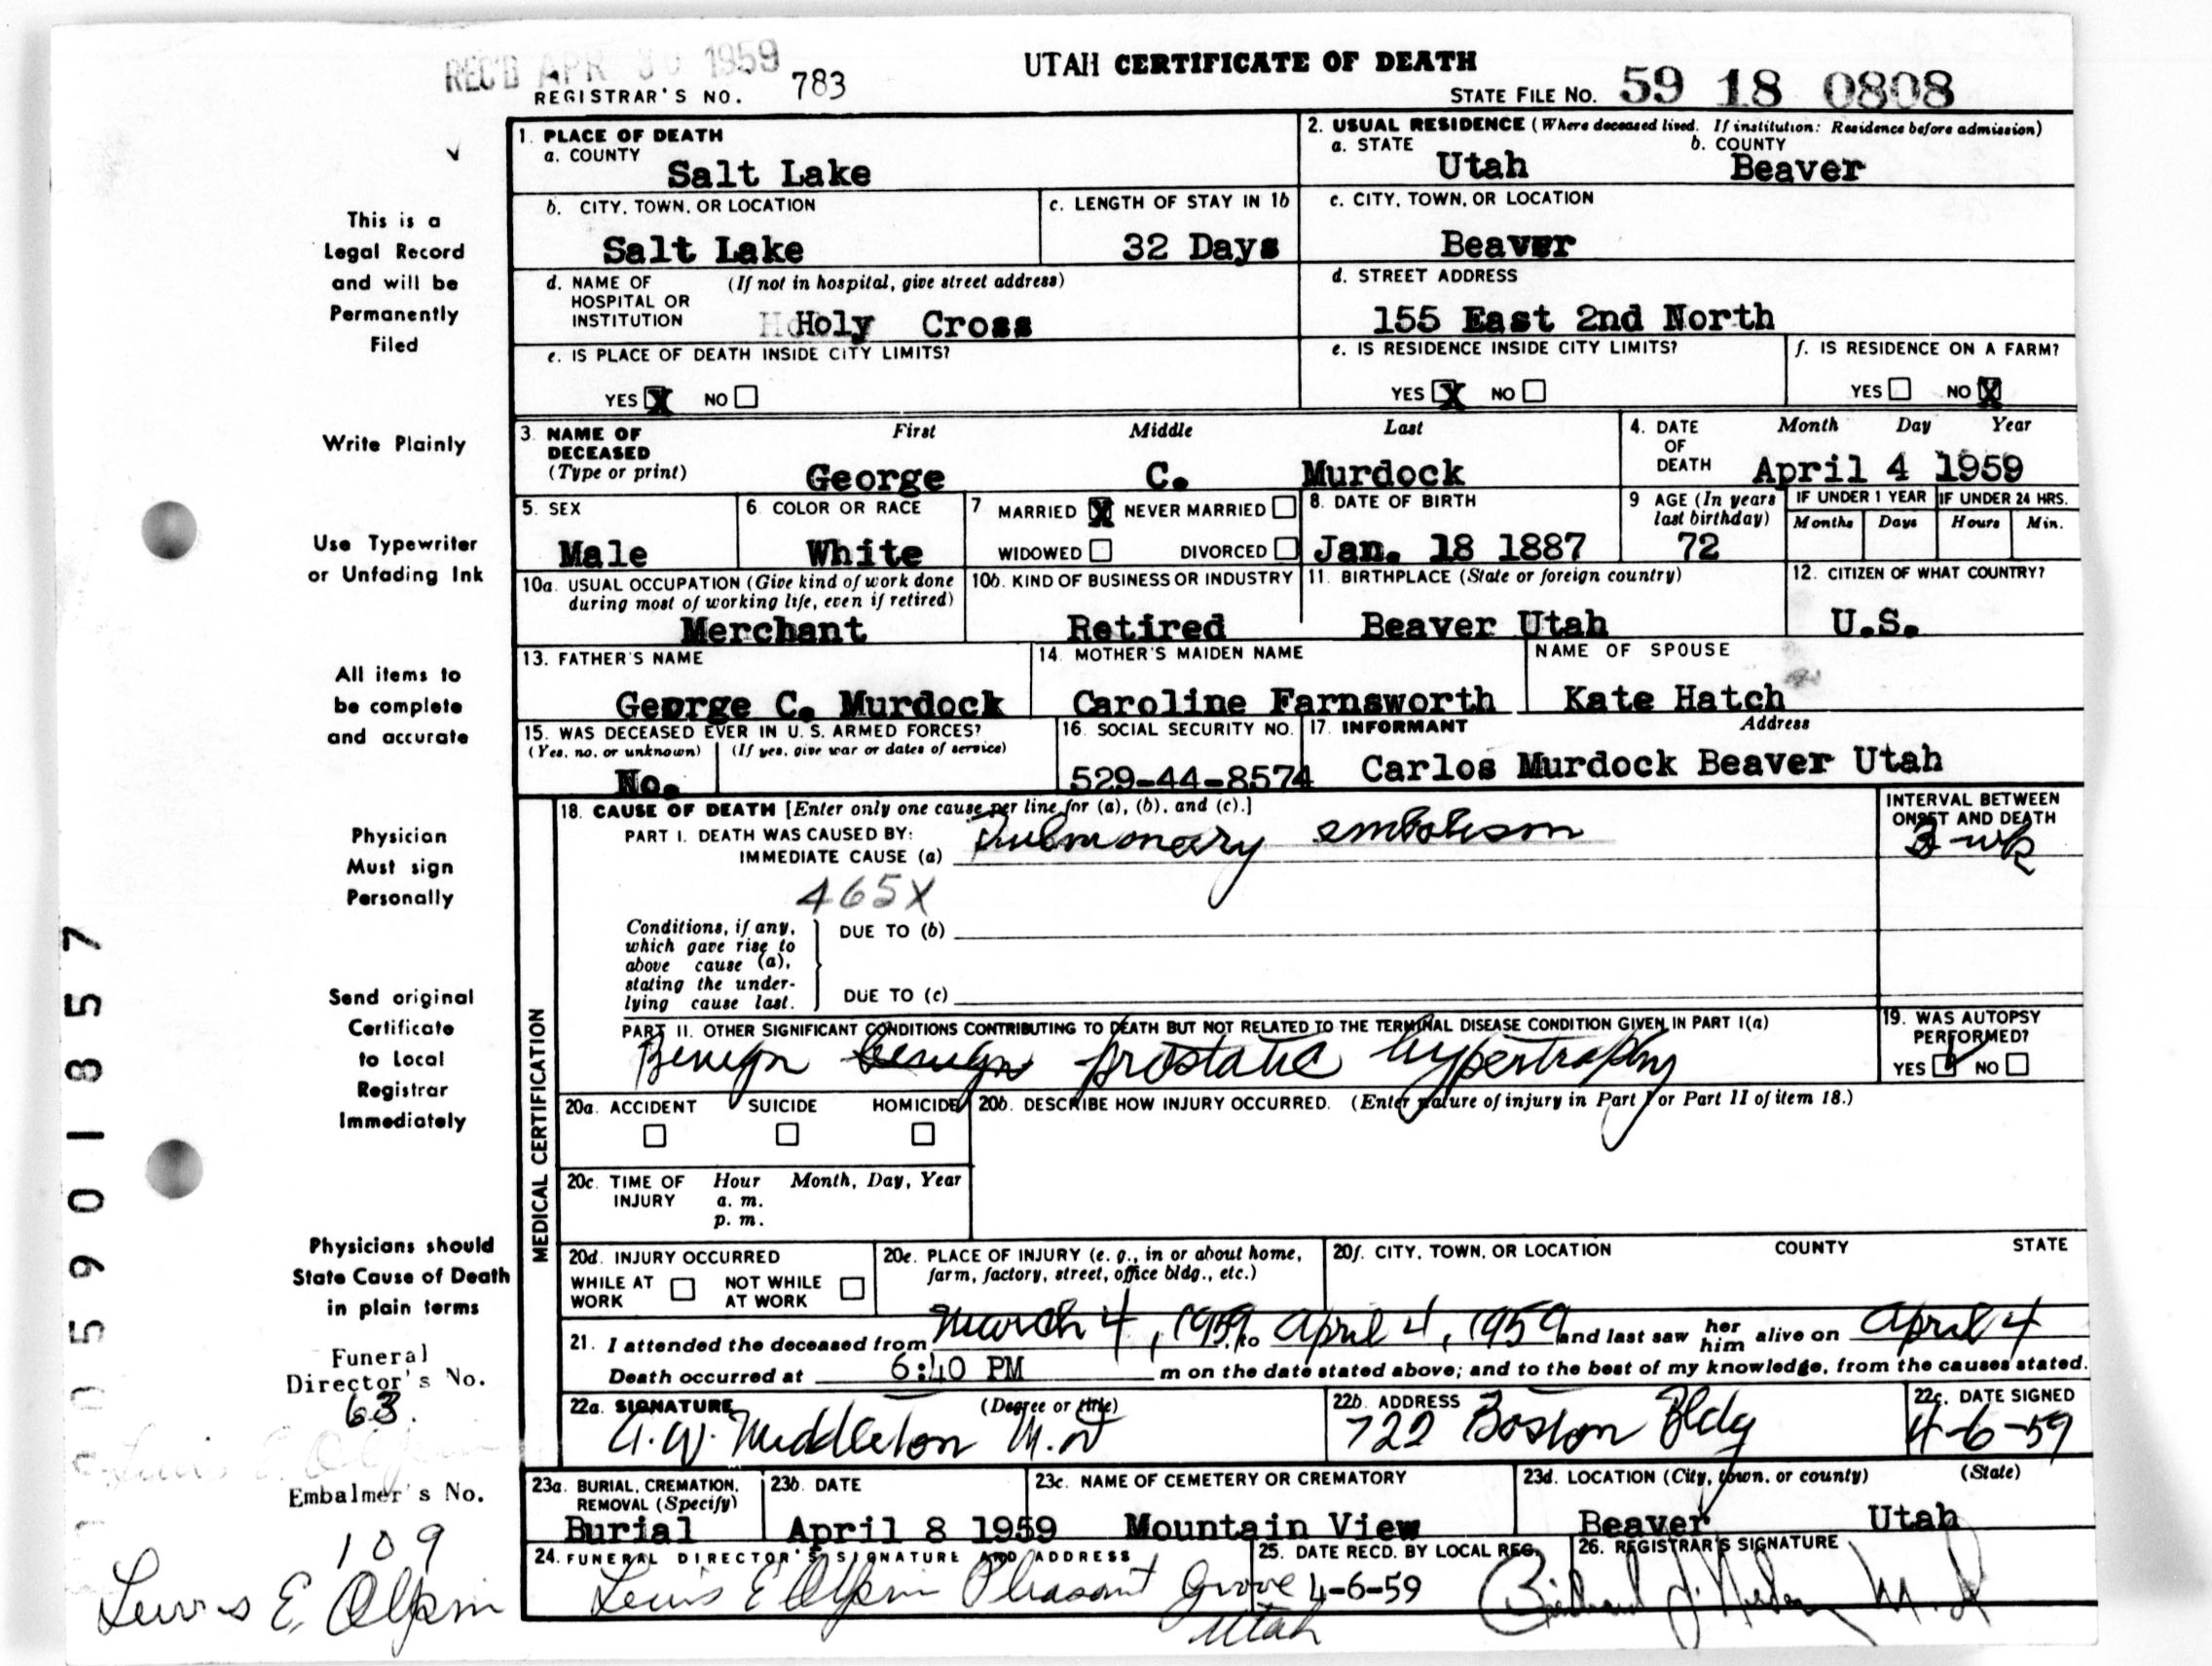 REC'D APR 30 1959
UTAH CERTIFICATE OF DEATH
REGISTRAR'S NO. 783
STATE FILE NO. 59 18 0808
This is a
Legal Record
and will be
Permanently
Filed
Write Plainly
Use Typewriter
or Unfading Ink
All items to
be complete
and accurate
Physician
Must sign
Personally
Send original
Certificate
to Local
Registrar
Immediately
Physicians should
State Cause of Death
in plain terms
Funeral
Director's No.
63.
Embalmer's No.
109
Lewis E. Olpin
1. PLACE OF DEATH
a. COUNTY
Salt Lake
2. USUAL RESIDENCE (Where deceased lived. If institution: Residence before admission)
a. STATE b. COUNTY
Utah Beaver
b. CITY, TOWN, OR LOCATION
Salt Lake
c. LENGTH OF STAY IN 1b
32 Days
c. CITY, TOWN, OR LOCATION
Beaver
d. NAME OF (If not in hospital, give street address)
HOSPITAL OR
INSTITUTION Holy Cross
d. STREET ADDRESS
155 East 2nd North
e. IS PLACE OF DEATH INSIDE CITY LIMITS?
YES X NO
e. IS RESIDENCE INSIDE CITY LIMITS?
YES X NO
f. IS RESIDENCE ON A FARM?
YES NO X
3. NAME OF First Middle Last
DECEASED
(Type or print) George C. Murdock
4. DATE Month Day Year
OF
DEATH April 4 1959
5. SEX
Male
6. COLOR OR RACE
White
7 MARRIED X NEVER MARRIED
WIDOWED DIVORCED
8. DATE OF BIRTH
Jan. 18 1887
9 AGE (In years
last birthday)
72
IF UNDER 1 YEAR IF UNDER 24 HRS.
Months Days Hours Min.
10a. USUAL OCCUPATION (Give kind of work done
during most of working life, even if retired)
Merchant
10b. KIND OF BUSINESS OR INDUSTRY
Retired
11. BIRTHPLACE (State or foreign country)
Beaver Utah
12. CITIZEN OF WHAT COUNTRY?
U.S.
13. FATHER'S NAME
George C. Murdock
14. MOTHER'S MAIDEN NAME
Caroline Farnsworth
NAME OF SPOUSE
Kate Hatch
15. WAS DECEASED EVER IN U. S. ARMED FORCES?
(Yes, no, or unknown) (If yes, give war or dates of service)
No.
16. SOCIAL SECURITY NO.
529-44-8574
17. INFORMANT Address
Carlos Murdock Beaver Utah
MEDICAL CERTIFICATION
18. CAUSE OF DEATH [Enter only one cause per line for (a), (b), and (c).]
PART I. DEATH WAS CAUSED BY:
IMMEDIATE CAUSE (a) Pulmonary embolism
INTERVAL BETWEEN
ONSET AND DEATH
3 wk
465X
Conditions, if any,
which gave rise to
above cause (a),
stating the under-
lying cause last.
DUE TO (b)
DUE TO (c)
PART II. OTHER SIGNIFICANT CONDITIONS CONTRIBUTING TO DEATH BUT NOT RELATED TO THE TERMINAL DISEASE CONDITION GIVEN IN PART I(a)
Benign benign prostatic hypertrophy
19. WAS AUTOPSY
PERFORMED?
YES NO
20a. ACCIDENT SUICIDE HOMICIDE
20b. DESCRIBE HOW INJURY OCCURRED. (Enter nature of injury in Part I or Part II of item 18.)
20c. TIME OF Hour Month, Day, Year
INJURY a. m.
p. m.
20d. INJURY OCCURRED
WHILE AT NOT WHILE
WORK AT WORK
20e. PLACE OF INJURY (e. g., in or about home,
farm, factory, street, office bldg., etc.)
20f. CITY, TOWN, OR LOCATION COUNTY STATE
21. I attended the deceased from March 4, 1959 to April 4, 1959 and last saw her him alive on April 4
Death occurred at 6:40 PM m on the date stated above; and to the best of my knowledge, from the causes stated.
22a. SIGNATURE (Degree or title)
A.W. Middleton M.D
22b. ADDRESS
722 Boston Bldg
22c. DATE SIGNED
4-6-59
23a. BURIAL, CREMATION,
REMOVAL (Specify)
Burial
23b. DATE
April 8 1959
23c. NAME OF CEMETERY OR CREMATORY
Mountain View
23d. LOCATION (City, town, or county) (State)
Beaver Utah
24. FUNERAL DIRECTOR'S SIGNATURE AND ADDRESS
Lewis E Olpin Pleasant Grove
Utah
25. DATE RECD. BY LOCAL REG.
4-6-59
26. REGISTRAR'S SIGNATURE
5901857